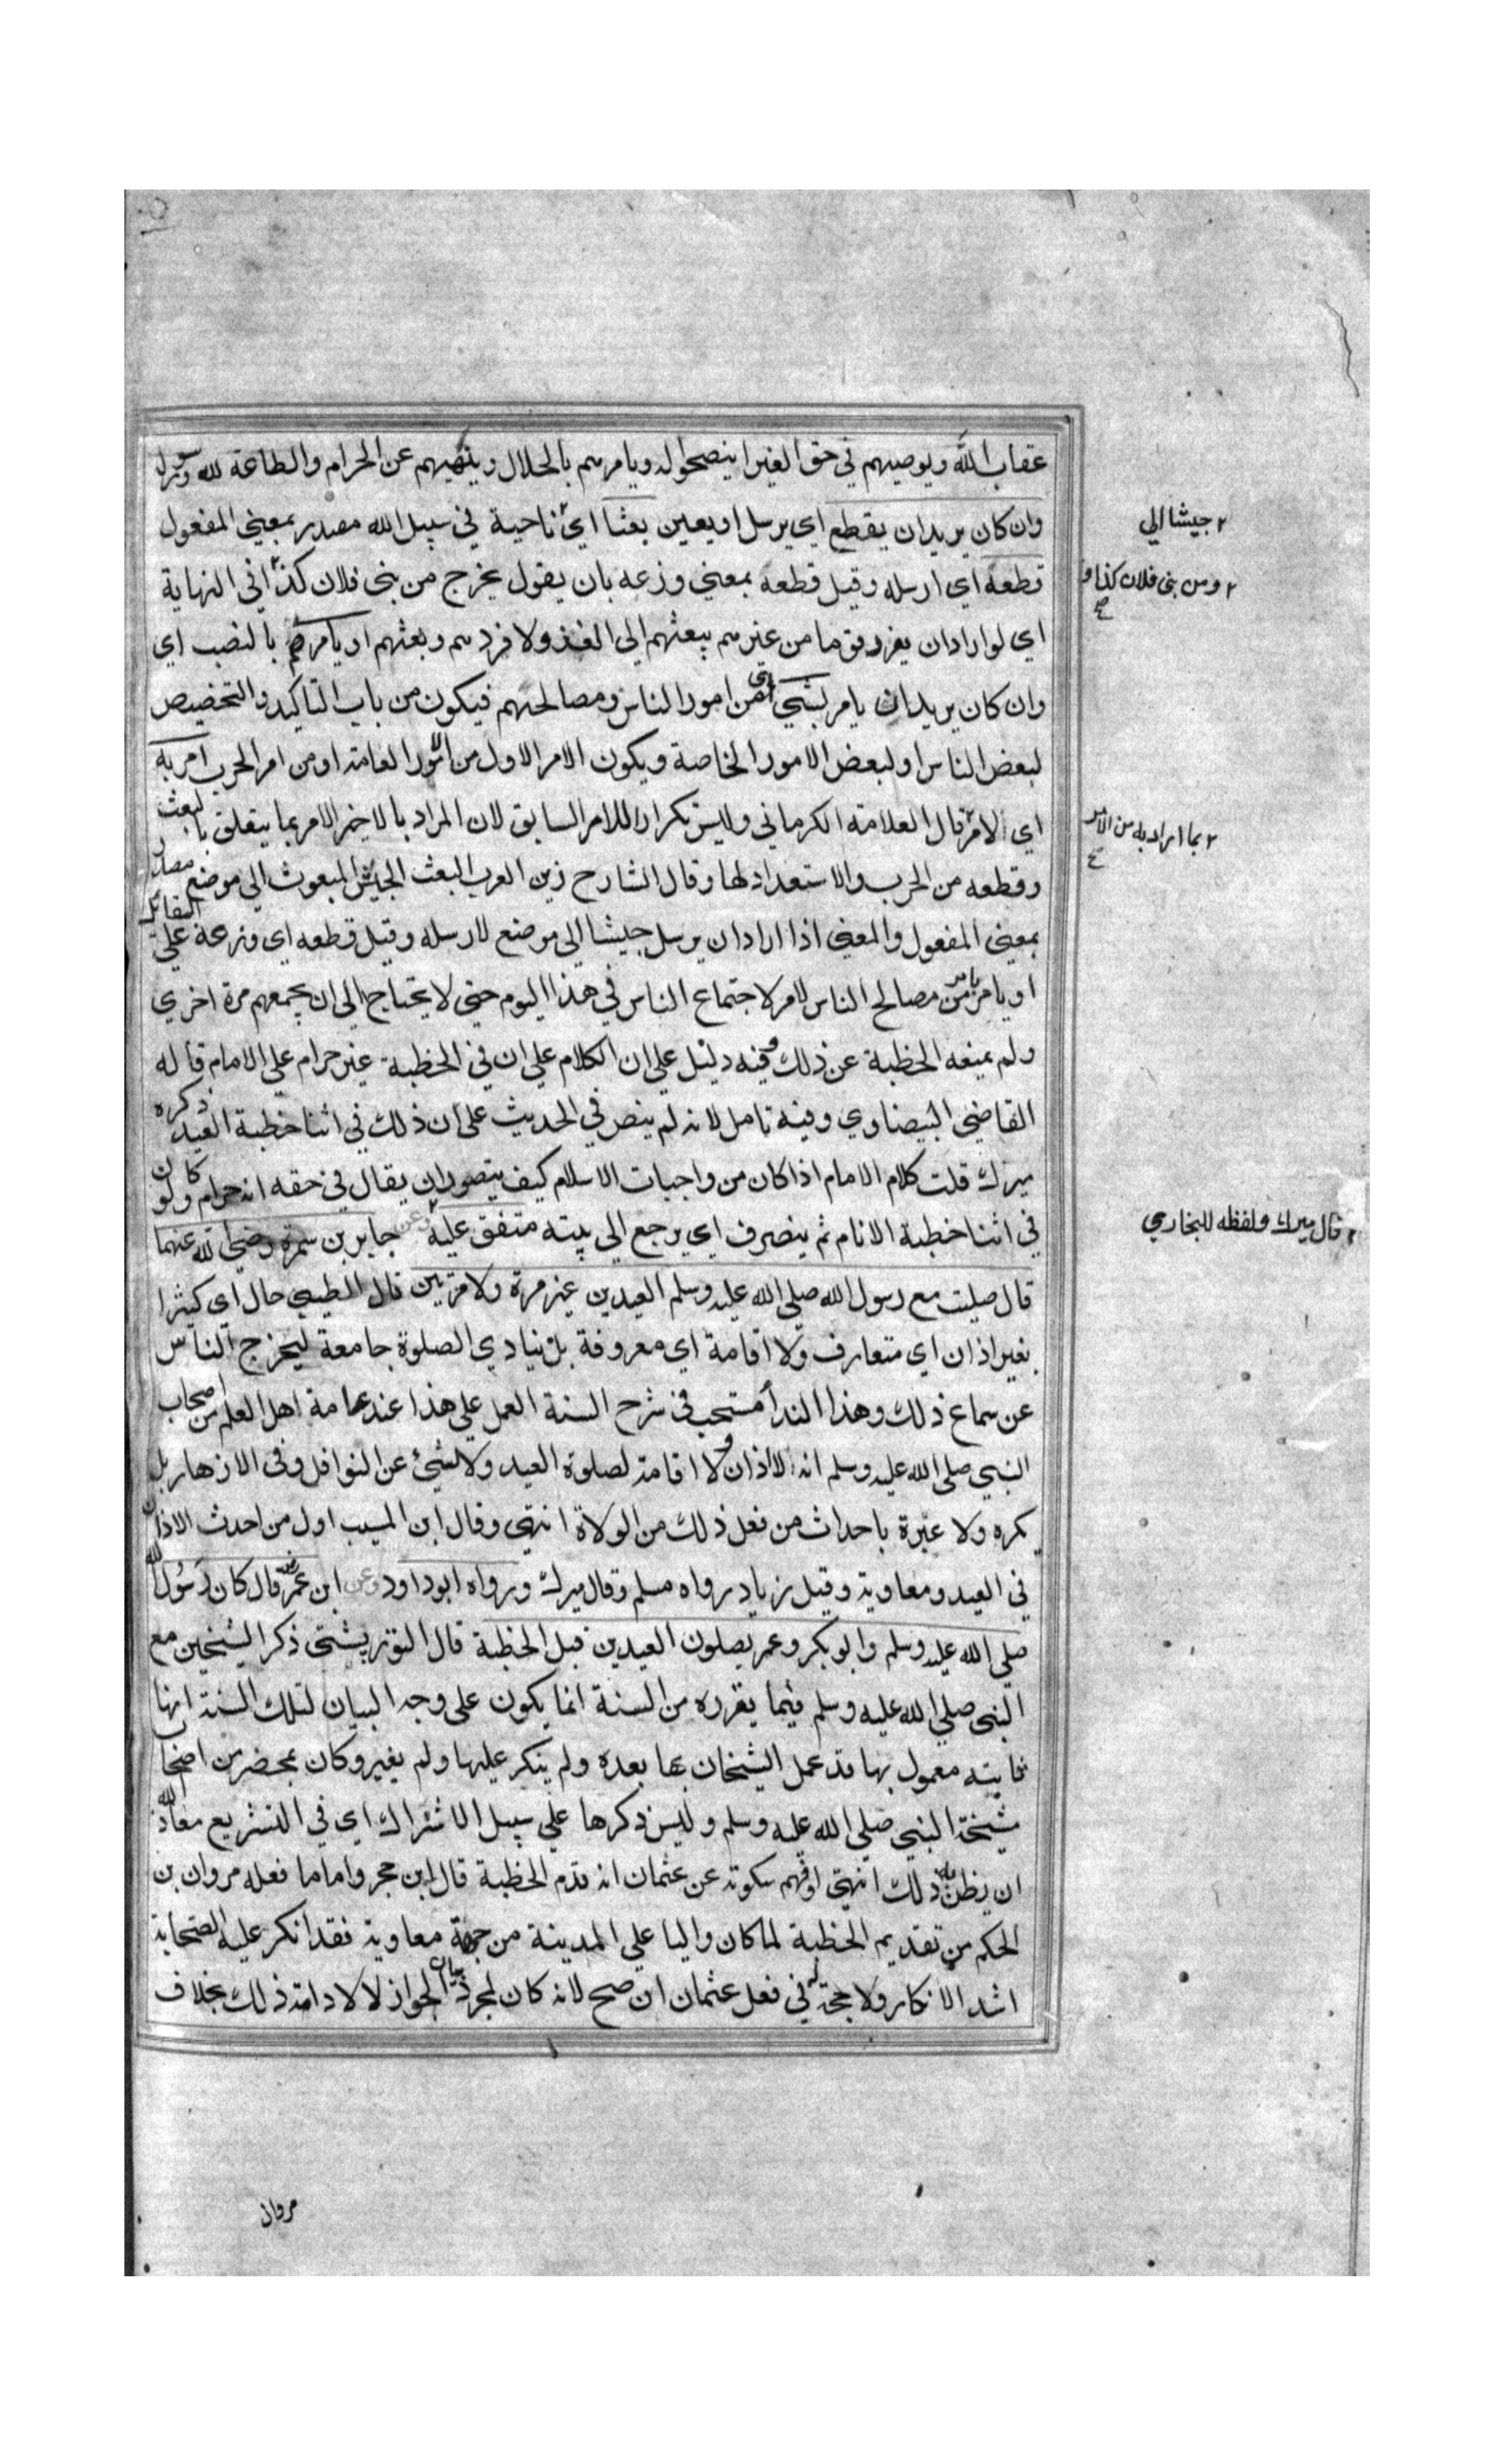 عقاب الله ويوصيهم في حق الغير اينصحوا له ويامرهم بالحلال وينهيهم عن الحرام والطاعة لله ورسوله
وان كان يريد ان يقطع اي يرسل او يعين بعثا اي ناحية في سبيل الله مصدر بمعني المفعول
٢ جيشا الي
قطعه اي ارسله وقيل قطعه بمعني وزعه بان يقول يخرج من بني فلان كذا في النهاية
٢ ومن بني فلان كذا و صح
اي لو اراد ان يفرد قوما من غيرهم يبعثهم الي الغزو لافردهم وبعثهم او يامرهم بالنصب اي
وان كان يريد ان يامر بشي اي من امور الناس ومصالحهم فيكون من باب التاكيد والتخصيص
لبعض الناس او لبعض الامور الخاصة ويكون الامر الاول من الامور العامة او من امر الحرب امر به
اي الامر قال العلامة الكرماني وليس تكرارا للامر السابق لان المراد بالاخير الامر بما يتعلق بالبعث
٢ بما اراد به من الامر صح
وقطعه من الحرب والاستعداد لها وقال الشارح زين العرب البعث الجيش المبعوث الي موضع مصدر
بمعني المفعول والمعني اذا اراد ان يرسل جيشا الي موضع لارسله وقيل قطعه اي وزعه علي القبائل
او يامر بامر من مصالح الناس لامر لاجتماع الناس في هذا اليوم حتي لا يحتاج الي ان يجمعهم مرة اخري
ولم يمنعه الخطبة عن ذلك وفيه دليل علي ان الكلام علي ان في الخطبة غير حرام علي الامام قاله
القاضي البيضاوي وفيه تامل لانه لم ينص في الحديث علي ان ذلك في اثنا خطبة العيد ذكره
ميرك قلت كلام الامام اذا كان من واجبات الاسلام كيف يتصور ان يقال في حقه انه حرام ولو كان
في اثنا خطبة الانام ثم ينصرف اي يرجع الي بيته متفق عليه وعن جابر بن سمرة رضي الله عنهما
٢ قال ميرك ولفظه للبخاري
قال صليت مع رسول الله صلي الله عليه وسلم العيدين غير مرة ولا مرتين قال الطيبي حال اي كثيرا
بغير اذان اي متعارف ولا اقامة اي معروفة بل ينادي الصلوة جامعة ليخرج الناس
عن سماع ذلك وهذا الندأ مستحب في شرح السنة العمل علي هذا عند عامة اهل العلم من اصحاب
النبي صلي الله عليه وسلم انه لا اذان ولا اقامة لصلوة العيد ولا لشئ عن النوافل وفي الازهار بل
يكره ولا عبرة باحداث من فعل ذلك من الولاة انتهي وقال ابن المسيب اول من احدث الاذان
في العيد ومعاوية وقيل زياد رواه مسلم وقال ميرك ورواه ابو داود وعن ابن عمر رض قال كان رسول الله
صلي الله عليه وسلم وابو بكر وعمر يصلون العيدين قبل الخطبة قال التوربشتي ذكر الشيخين مع
النبي صلي الله عليه وسلم فيما يقرره من السنة انما يكون علي وجه البيان لتلك السنة انها
ثابته معمول بها قد عمل الشيخان بها بعده ولم ينكر عليها ولم يغير وكان بمحضر من اصحاب
مشيخة النبي صلي الله عليه وسلم وليس ذكرها علي سبيل الاشتراك اي في التشريع معاذ الله
ان يظن به ذلك انتهي افهم سكوته عن عثمان انه قدم الخطبة قال ابن حجر واما ما فعله مروان بن
الحكم من تقديم الخطبة لما كان واليا علي المدينة من جهة معاوية فقد انكر عليه الصحابة
اشد الانكار ولا حجة له في فعل عثمان ان صح لانه كان لمجرد بيان الجواز لا لادامة ذلك بخلاف
مروان